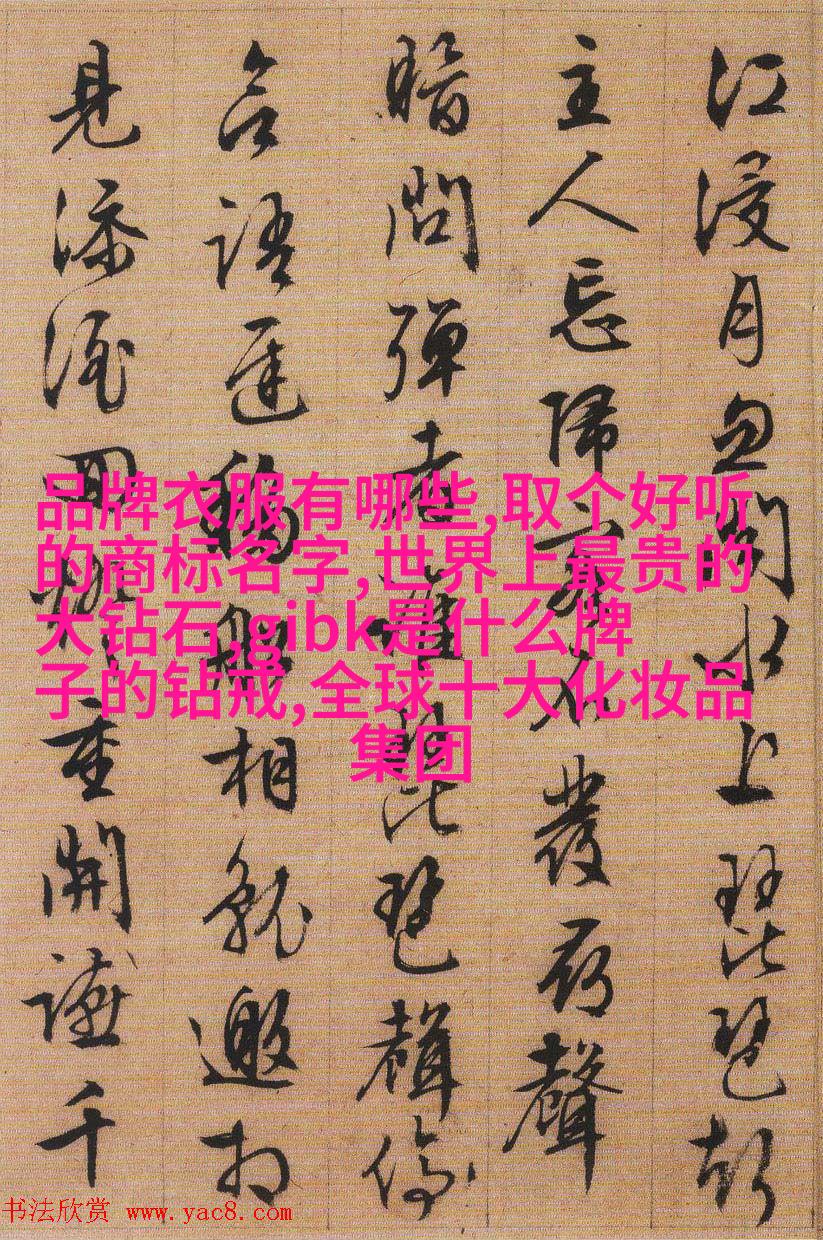 江浸月忽聞水上琵琶聲
主人忘歸客不發尋聲
暗問彈者誰琵琶聲停
語遲移船相就邀相
見添酒回燈重開讌千
品牌衣服有哪些,取个好听
的商标名字,世界上最贵的
大钻石,gibk是什么牌
子的钻戒,全球十大化妆品
集团
书法欣赏 www.yac8.com